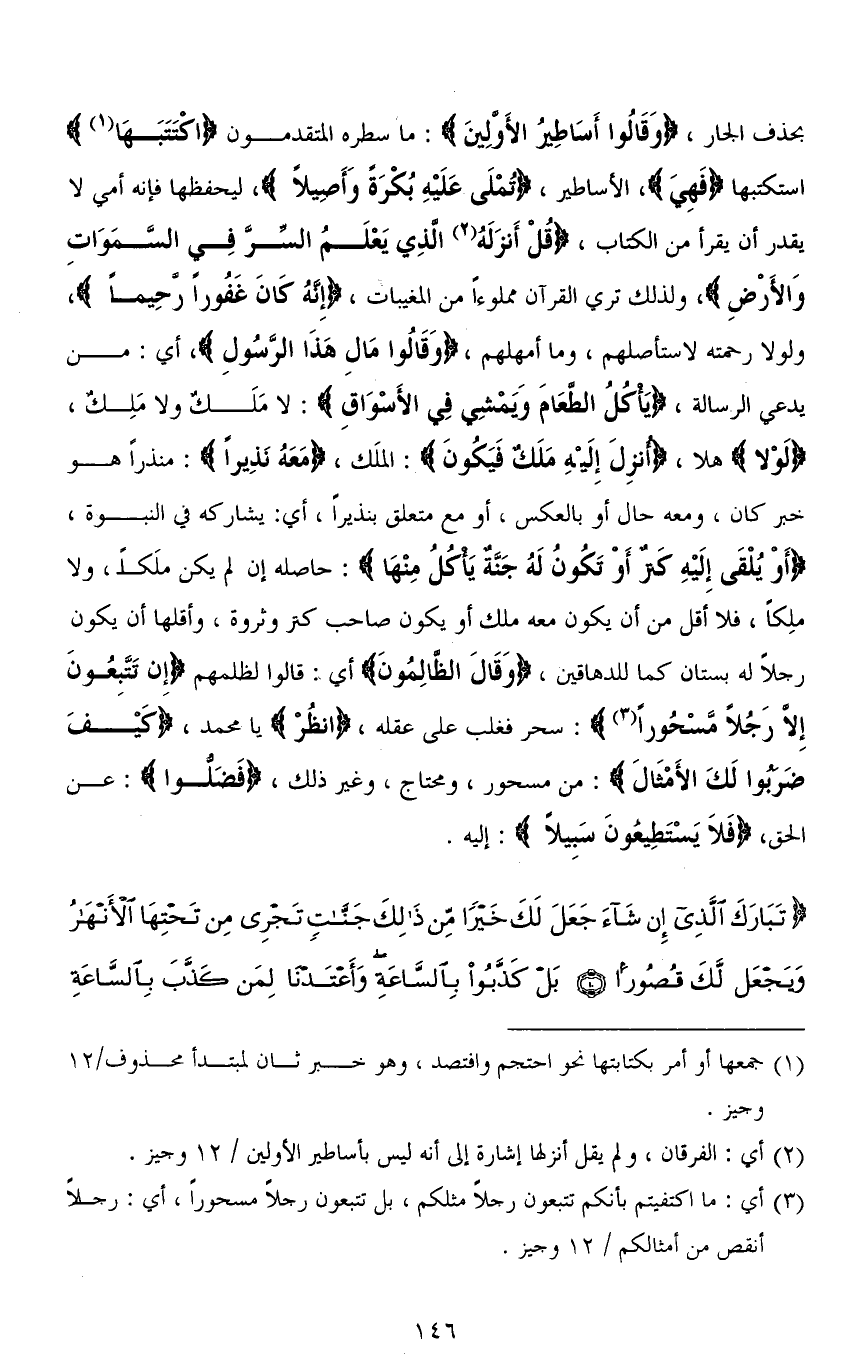 بحذف الجار ، ﴿وَقَالُوا أَسَاطِيرُ الأَوَّلِينَ ﴾ : ما سطره المتقدمون ﴿اكْتَتَبَهَا(١) ﴾
استكتبها ﴿فَهِيَ﴾، الأساطير ، ﴿تُمْلَى عَلَيْهِ بُكْرَةً وَأَصِيلاً ﴾، ليحفظها فإنه أمي لا
يقدر أن يقرأ من الكتاب ، ﴿قُلْ أَنزَلَهُ(٢) الَّذِي يَعْلَمُ السِّرَّ فِي السَّمَوَاتِ
وَالأَرْضِ ﴾، ولذلك تري القرآن مملوءاً من المغيبات ، ﴿إِنَّهُ كَانَ غَفُوراً رَّحِيماً ﴾،
ولولا رحمته لاستأصلهم ، وما أمهلهم ، ﴿وَقَالُوا مَالِ هَذَا الرَّسُولِ ﴾، أي : من
يدعي الرسالة ، ﴿يَأْكُلُ الطَّعَامَ وَيَمْشِي فِي الأَسْوَاقِ ﴾ : لا مَلَكٌ ولا مَلِكٌ ،
﴿لَوْلا ﴾ هلا ، ﴿أُنزِلَ إِلَيْهِ مَلَكٌ فَيَكُونَ ﴾ : الملَك ، ﴿مَعَهُ نَذِيراً ﴾ : منذراً هو
خبر كان ، ومعه حال أو بالعكس ، أو مع متعلق بنذيراً ، أي: يشاركه في النبوة ،
﴿أَوْ يُلْقَى إِلَيْهِ كَنزٌ أَوْ تَكُونُ لَهُ جَنَّةٌ يَأْكُلُ مِنْهَا ﴾ : حاصله إن لم يكن ملَكاً ، ولا
ملِكاً ، فلا أقل من أن يكون معه ملك أو يكون صاحب كنز وثروة ، وأقلها أن يكون
رجلاً له بستان كما للدهاقين ، ﴿وَقَالَ الظَّالِمُونَ﴾ أي : قالوا لظلمهم ﴿إِن تَتَّبِعُونَ
إِلاَّ رَجُلاً مَّسْحُوراً(٣) ﴾ : سحر فغلب على عقله ، ﴿انظُرْ ﴾ يا محمد ، ﴿كَيْفَ
ضَرَبُوا لَكَ الأَمْثَالَ ﴾ : من مسحور ، ومحتاج ، وغير ذلك ، ﴿فَضَلُّوا ﴾ : عن
الحق، ﴿فَلاَ يَسْتَطِيعُونَ سَبِيلاً ﴾ : إليه .
﴿ تَبَارَكَ ٱلَّذِىٓ إِن شَآءَ جَعَلَ لَكَ خَيْرًا مِّن ذَٰلِكَ جَنَّٰتٍ تَجْرِى مِن تَحْتِهَا ٱلْأَنْهَٰرُ
وَيَجْعَل لَّكَ قُصُورًۢا ۝١٠ بَلْ كَذَّبُواْ بِٱلسَّاعَةِ ۖ وَأَعْتَدْنَا لِمَن كَذَّبَ بِٱلسَّاعَةِ
(١) جمعها أو أمر بكتابتها نحو احتجم وافتصد ، وهو خبر ثان لمبتدأ محذوف/١٢
وجيز .
(٢) أي : الفرقان ، ولم يقل أنزلها إشارة إلى أنه ليس بأساطير الأولين / ١٢ وجيز .
(٣) أي : ما اكتفيتم بأنكم تتبعون رجلاً مثلكم ، بل تتبعون رجلاً مسحوراً ، أي : رجلاً
أنقص من أمثالكم / ١٢ وجيز .
١٤٦